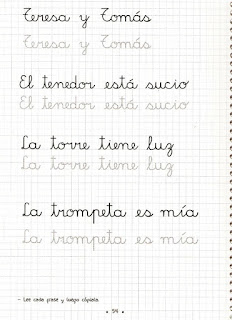 Teresa y Tomás
Teresa y Tomás
El tenedor está sucio
El tenedor está sucio
La torre tiene luz
La torre tiene luz
La trompeta es mía
La trompeta es mía
- Lee cada frase y luego cópiala.
• 54 •